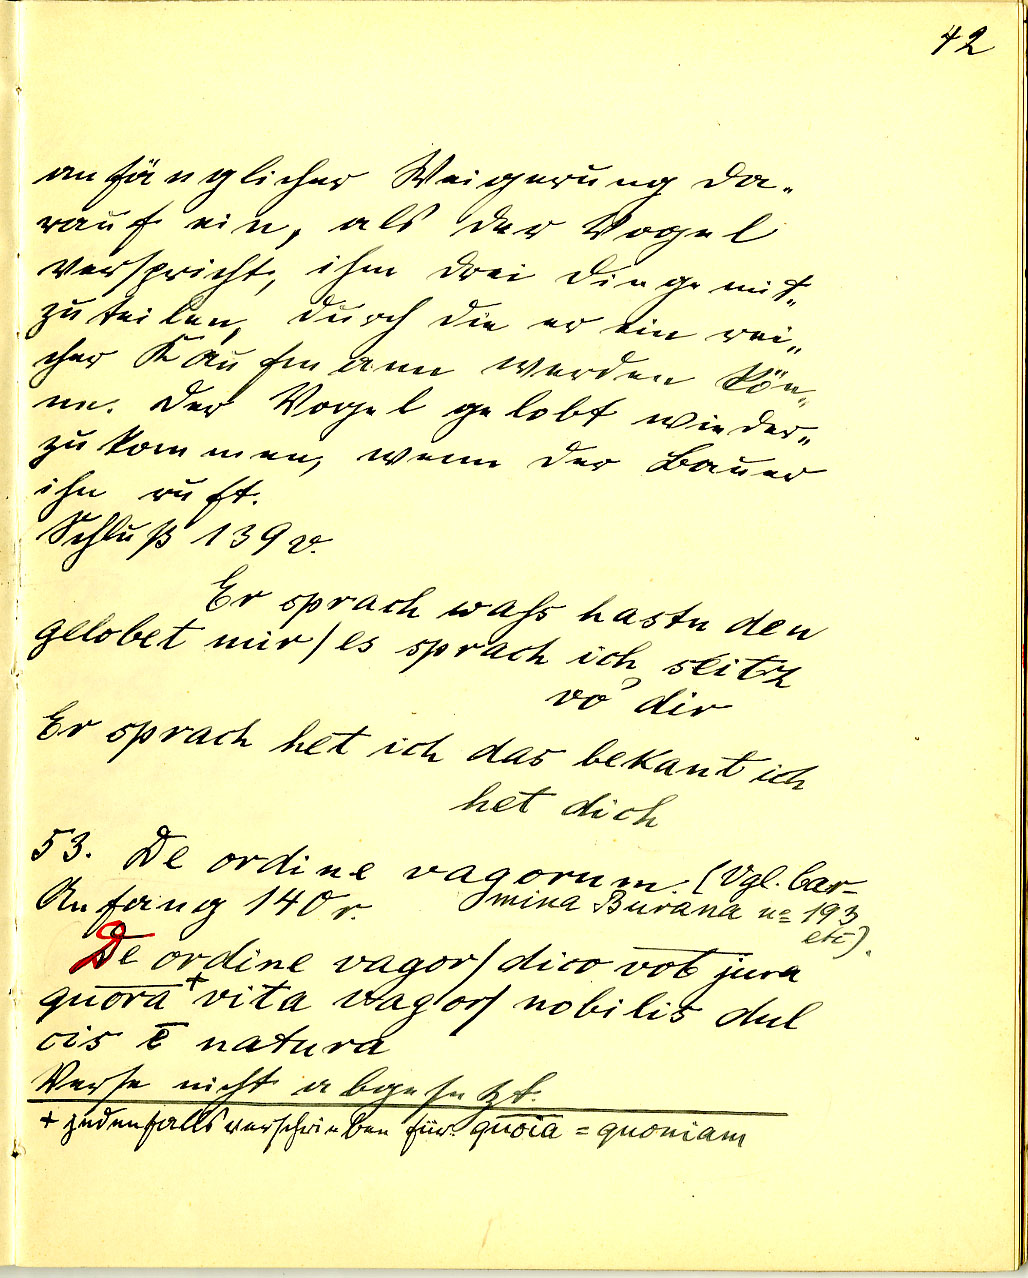 42
anfänglicher Weigerung da„
rauf ein, als der Vogel
verspricht, ihm drei Dinge mit„
zuteilen, durch die er ein rei„
cher Kaufmann werden kön„
ne. Der Vogel gelobt wieder„
zukommen, wenn der Bauer
ihn ruft.
Schluß 139 v.
Er sprach wahs hastu den
gelobet mir / es sprach ich seitz
vo dir
Er sprach het ich das bekant ich
het dich
53. De ordine vagorum. (Vgl. Car-
mina Burana no 193
etc).
Anfang 140 r.
De ordine vagor/ dico vob jura
quora + vita vagor/ nobilis dul
cis ē natura
Verse nicht abgesetzt.
+ jedenfalls verschrieben für: quoia = quoniam